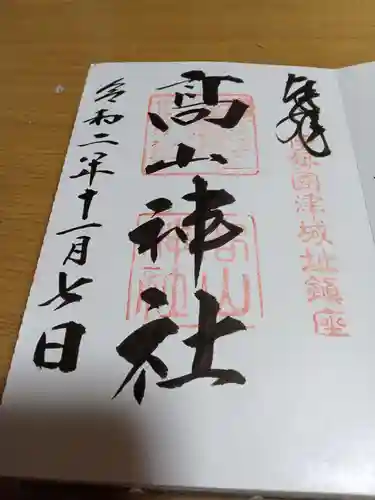 奉拝
國津城址鎮座
高山神社
高山神社
令和二年十一月七日